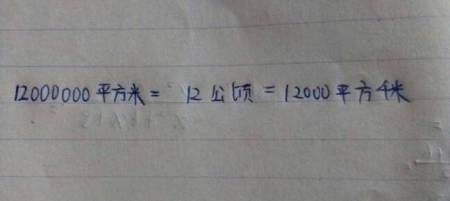 12000000平方米= 12公顷=12000平方千米